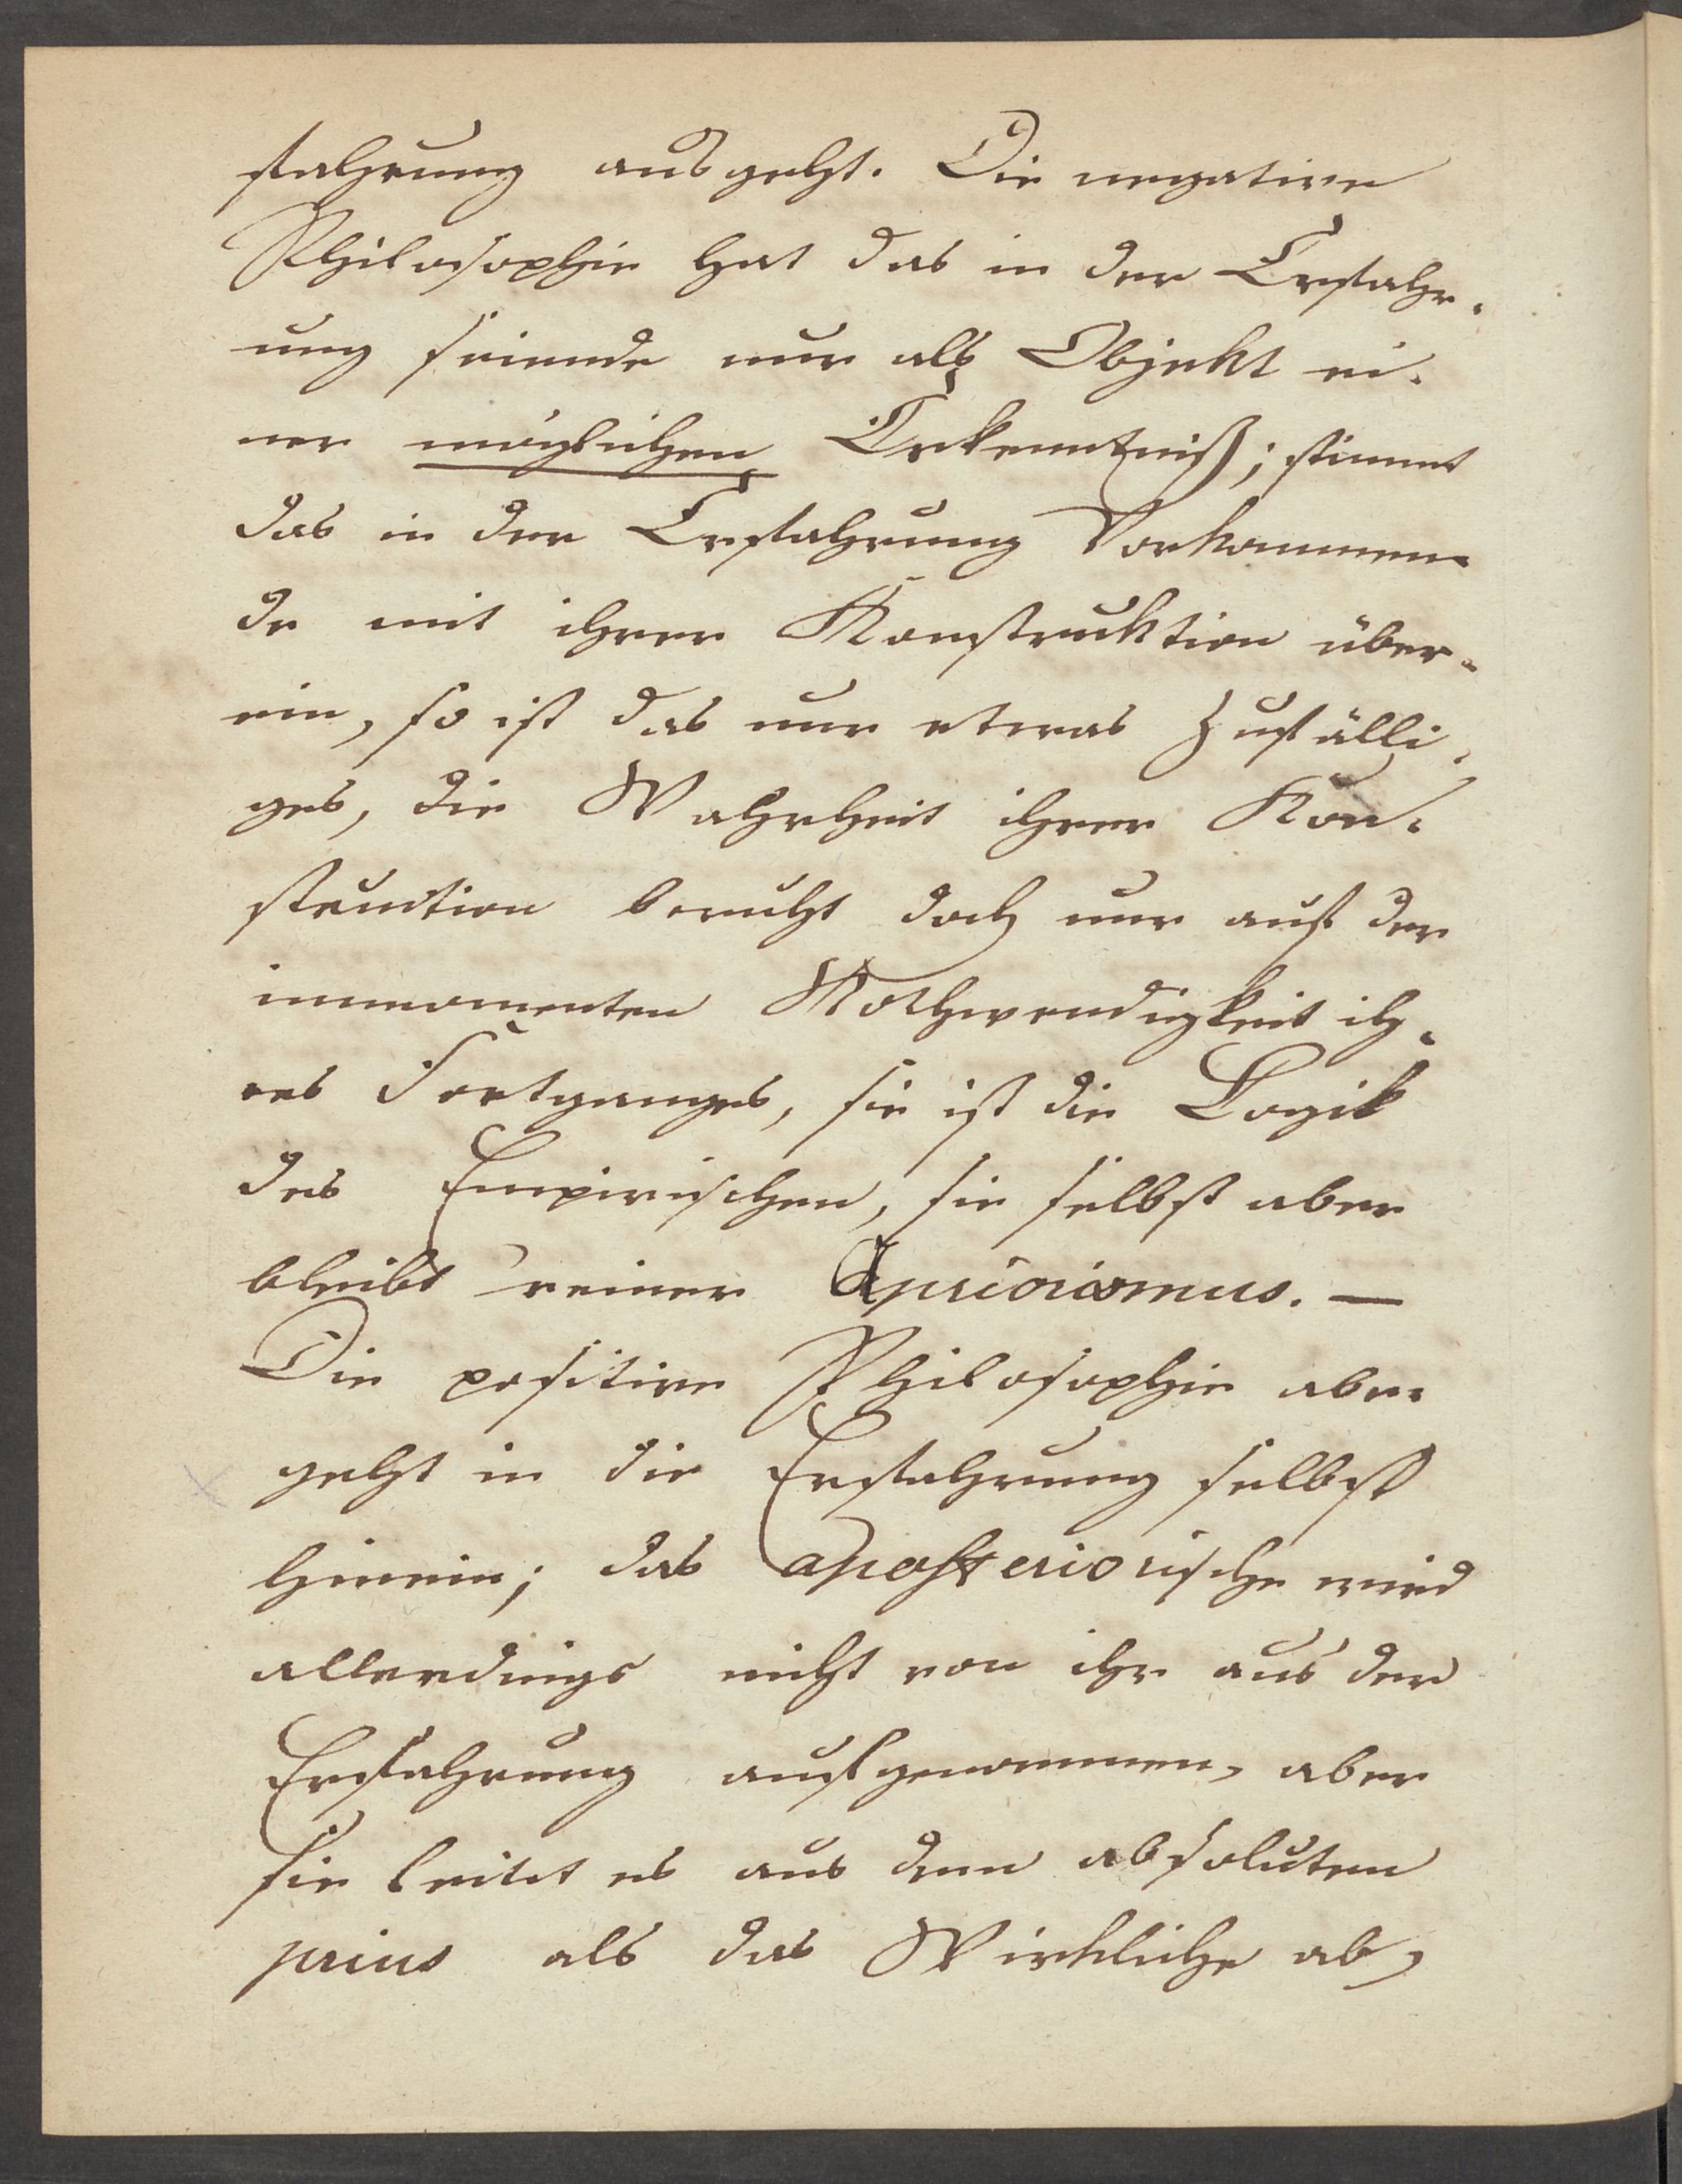 fahrung ausgeht. Die negative
Philosophie hat das in der Erfahr-
ung seiende nur als Objekt ei-
ner möglichen Erkenntniß; stimmt
das in der Erfahrung Vorkommen-
de mit ihrer Konstruktion über-
ein, so ist das nur etwas Zufälli-
ges, die Wahrheit ihrer Kon-
struction beruht doch nur auf der
immanenten Nothwendigkeit ih-
res Fortganges, sie ist die Logik
des Empirischen, sie selbst aber
bleibt reiner Apriorismus. —
Die positive Philosophie aber
geht in die Erfahrung selbst
hinein; das aposteriorische wird
allerdings nicht von ihr aus der
Erfahrung aufgenommen, aber
sie leitet es aus dem absoluten
prius als das Wirkliche ab,